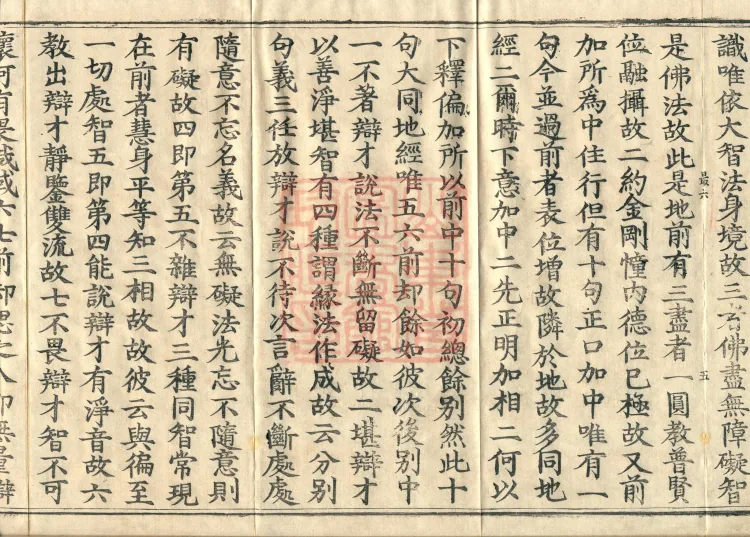 識唯依大智法身境故三者佛盡無障礙智
是佛法故此是地前有三盡者一圓教普賢
最六
五
位融攝故二約金剛幢內德位已極故又前
加所爲中住行但有十句正口加中唯有一
句今並過前者表位增故隣於地故多同地
經二爾時下意加中二先正明加相二何以
下釋偏加所以前中十句初總餘別然此十
句大同地經唯五六前却餘如彼次後別中
一不著辯才說法不斷無留礙故二堪辯才
以善淨堪智有四種謂緣法作成故云分別
句義三任放辯才說不待次言辭不斷處處
隨意不忘名義故云無礙法光忘不隨意則
有礙故四即第五不雜辯才三種同智常現
在前者慧身平等知三相故故彼云與徧至
一切處智五即第四能說辯才有淨音故六
教出辯才靜鑒雙流故七不畏辯才智不可
壞何有畏
六七前却